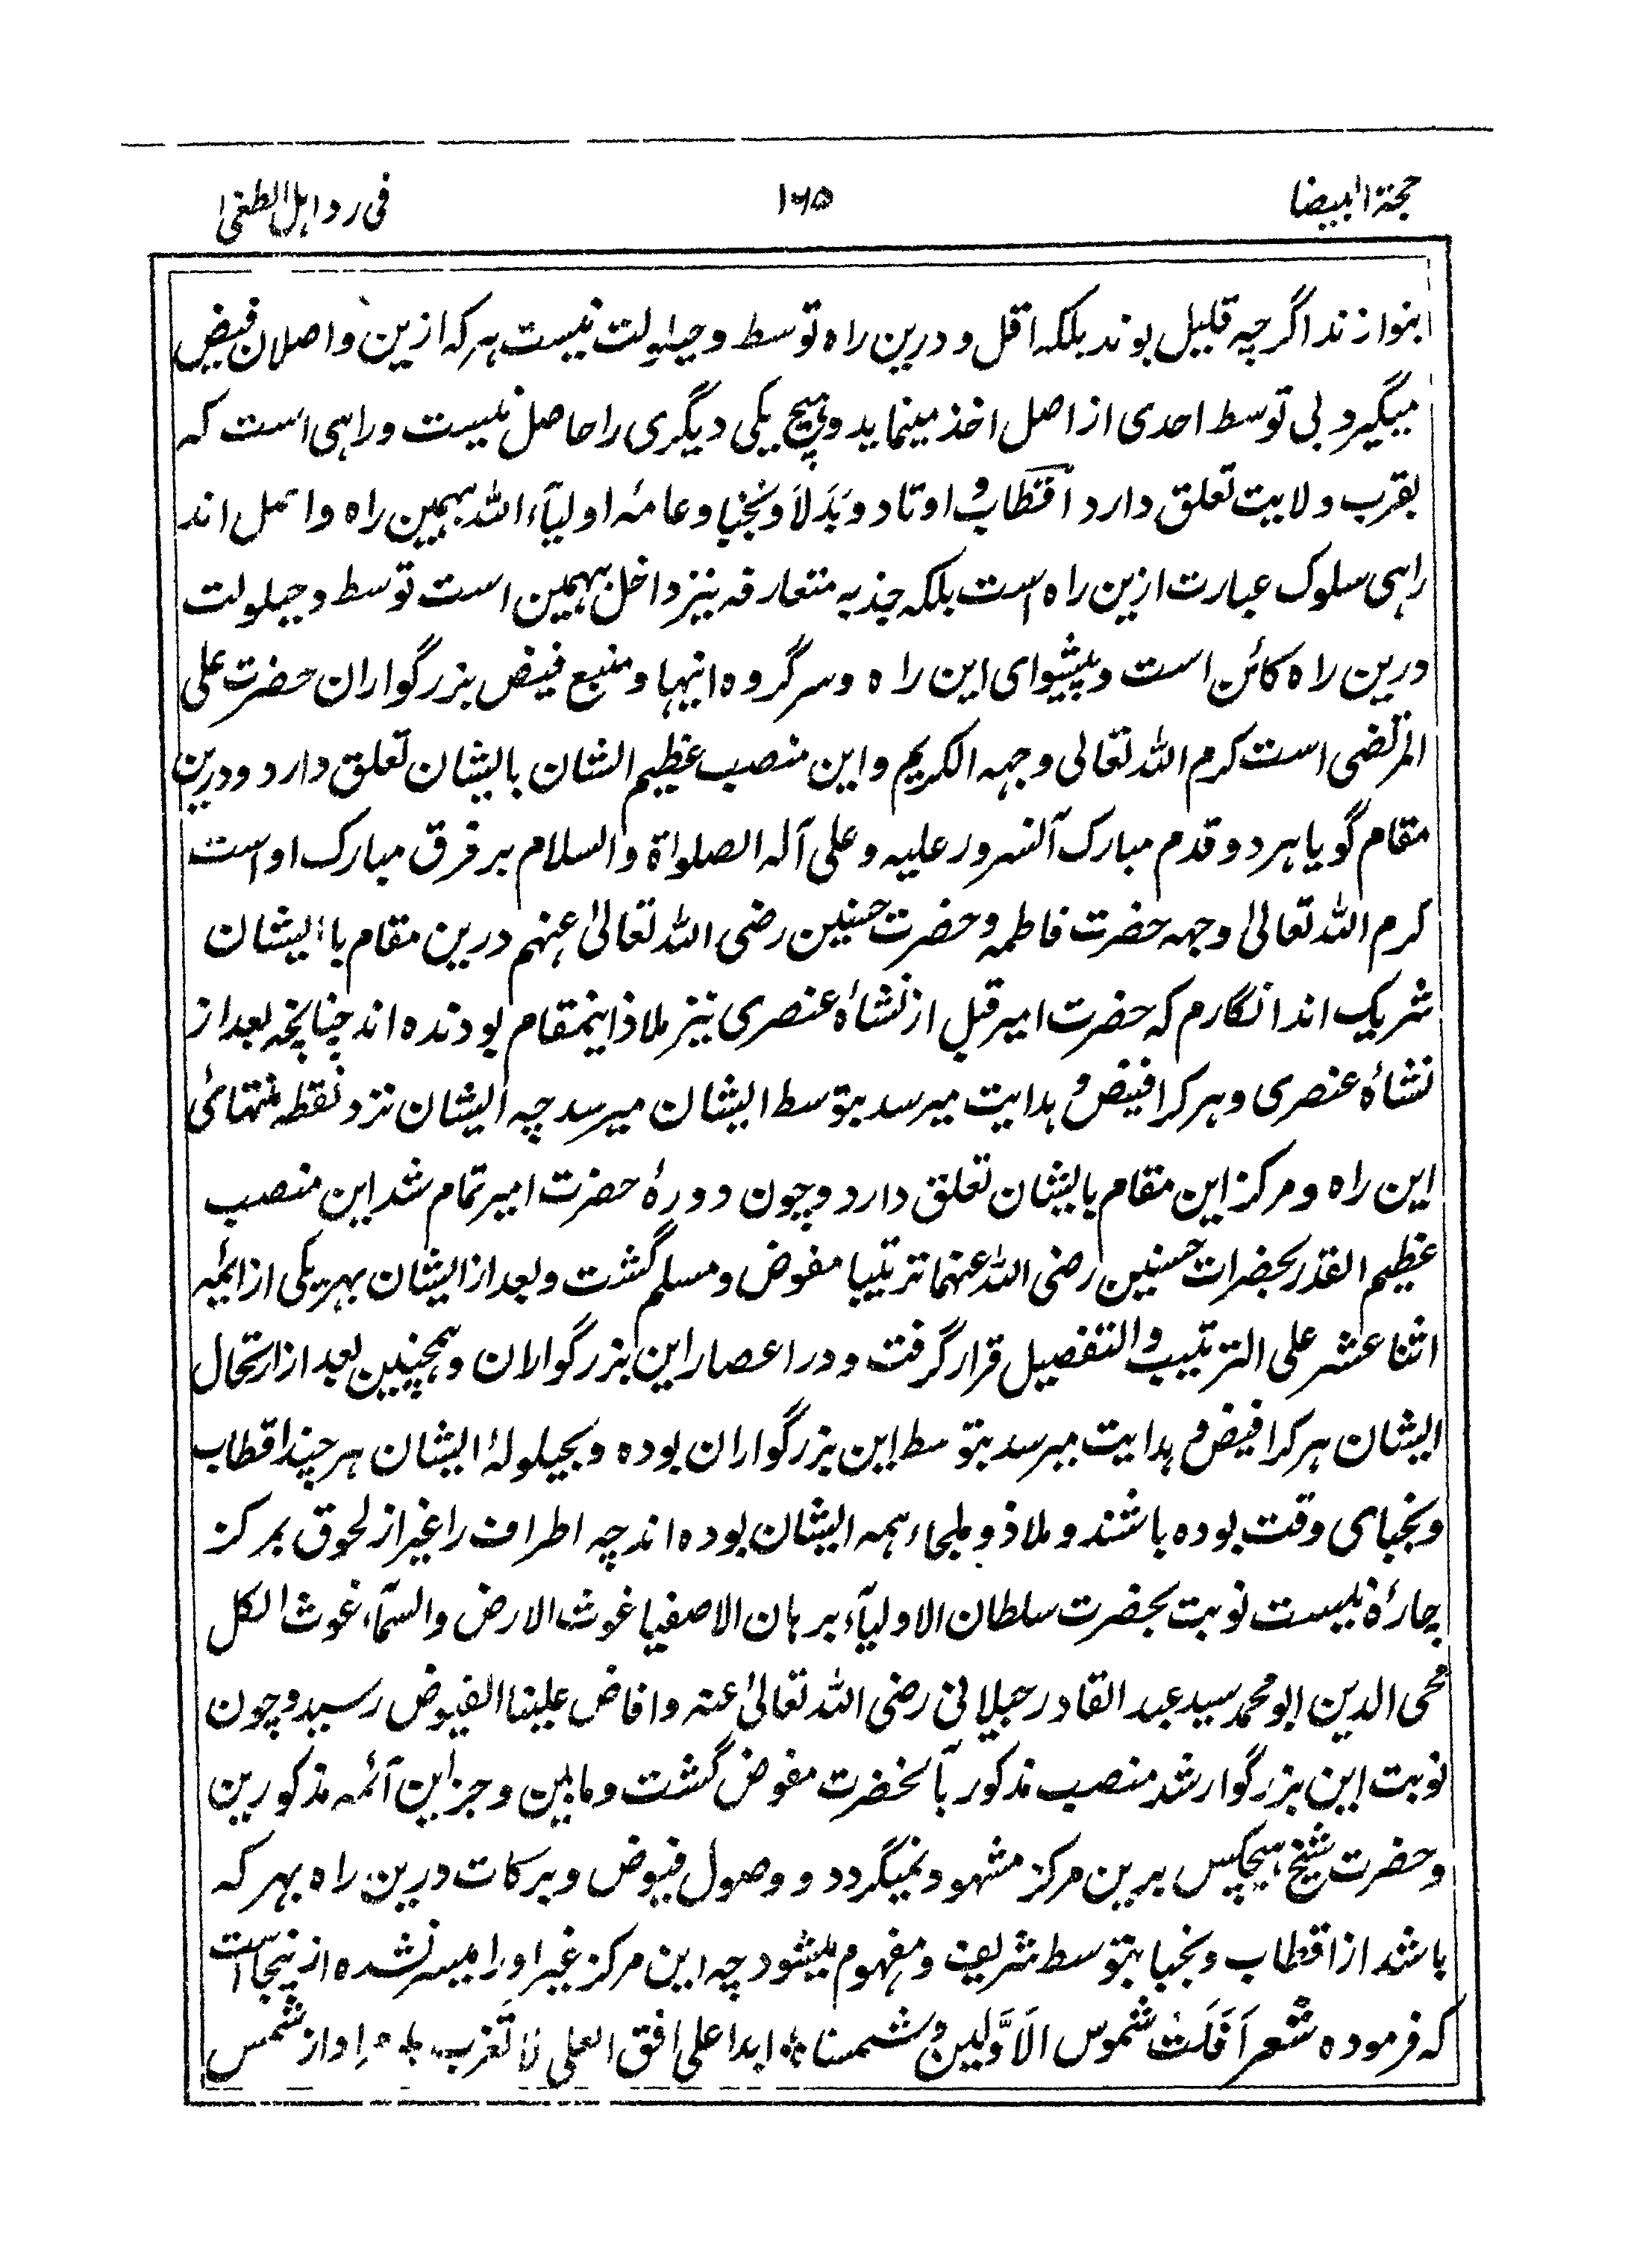 حجة البیضا ۱۶۵ فی رد اہل الطغیٰ
بنوازند اگرچہ قلیل بوند بلکہ اقل و درین راہ توسط و حیلولت نیست ہر کہ ازین واصلان فیض
میگیرد بی توسط احدی از اصل اخذ مینماید و ہیچ یکی دیگری را حاصل نیست و راہی است کہ
بقرب ولایت تعلق دارد اقطاب و اوتاد و بدلا و نجبا و عامہٴ اولیآء اللہ بہمین راہ واصل اند
راہی سلوک عبارت ازین راہ است بلکہ جذبہ متعارفہ نیز داخل ہمین است توسط و حیلولت
درین راہ کائن است و پیشوای این راہ و سر گروہ اینہا و منبع فیض بزرگواران حضرت علی
المرتضی است کرم اللہ تعالی وجہہ الکریم و این منصب عظیم الشان بایشان تعلق دارد و درین
مقام گویا ہر دو قدم مبارک آنسرور علیہ و علی آلہ الصلواة والسلام بر فرق مبارک او است
کرم اللہ تعالیٰ وجہہ حضرت فاطمہ و حضرت حسنین رضی اللہ تعالیٰ عنہم درین مقام با ایشان
شریک اند انگارم کہ حضرت امیر قبل از نشاٴہ عنصری نیز ملاذ اینمقام بودندہ اند چنانچہ بعد از
نشاٴہ عنصری و ہر کرا فیض و ہدایت میرسد بتوسط ایشان میرسد چہ ایشان نزد نقطہ منتہائی
این راہ و مرکز این مقام بایشان تعلق دارد و چون دورہٴ حضرت امیر تمام شد این منصب
عظیم القدر بحضرات حسنین رضی اللہ عنہما ترتیبا مفوض و مسلم گشت و بعد از ایشان بہر یکی از ائمہ
اثنا عشر علی الترتیب والتفصیل قرار گرفت و در اعصار این بزرگواران و ہمچنین بعد از ارتحال
ایشان ہر کرا فیض و ہدایت میرسد بتوسط این بزرگواران بودہ و بحیلولہٴ ایشان ہر چند اقطاب
و نجبای وقت بودہ باشند و ملاذ و ملجاء ہمہ ایشان بودہ اند چہ اطراف را غیر از لحوق بمرکز
چارہٴ نیست نوبت بحضرت سلطان الاولیآء برہان الاصفیا غوث الارض والسمآء غوث الکل
محی الدین ابو محمد سید عبد القادر جیلانی رضی اللہ تعالیٰ عنہ و افاض علینا الفیوض رسید و چون
نوبت این بزرگوار شد منصب مذکور بآنحضرت مفوض گشت و مابین و جز این آئمہ مذکورین
و حضرت شیخ ہیچکس برین مرکز مشہود نمیگردد و وصول فیوض و برکات درین راہ بہر کہ
باشد از اقطاب و نجبا بتوسط شریف و مفہوم میشود چہ این مرکز غیر او را میسر نشدہ ازینجا است
کہ فرمودہ شعر اَفَلَتْ شموس الاَوَّلین و شمسنا ٭ ابدا علی افق العلی لا تَغرب ٭ مراد از شمس